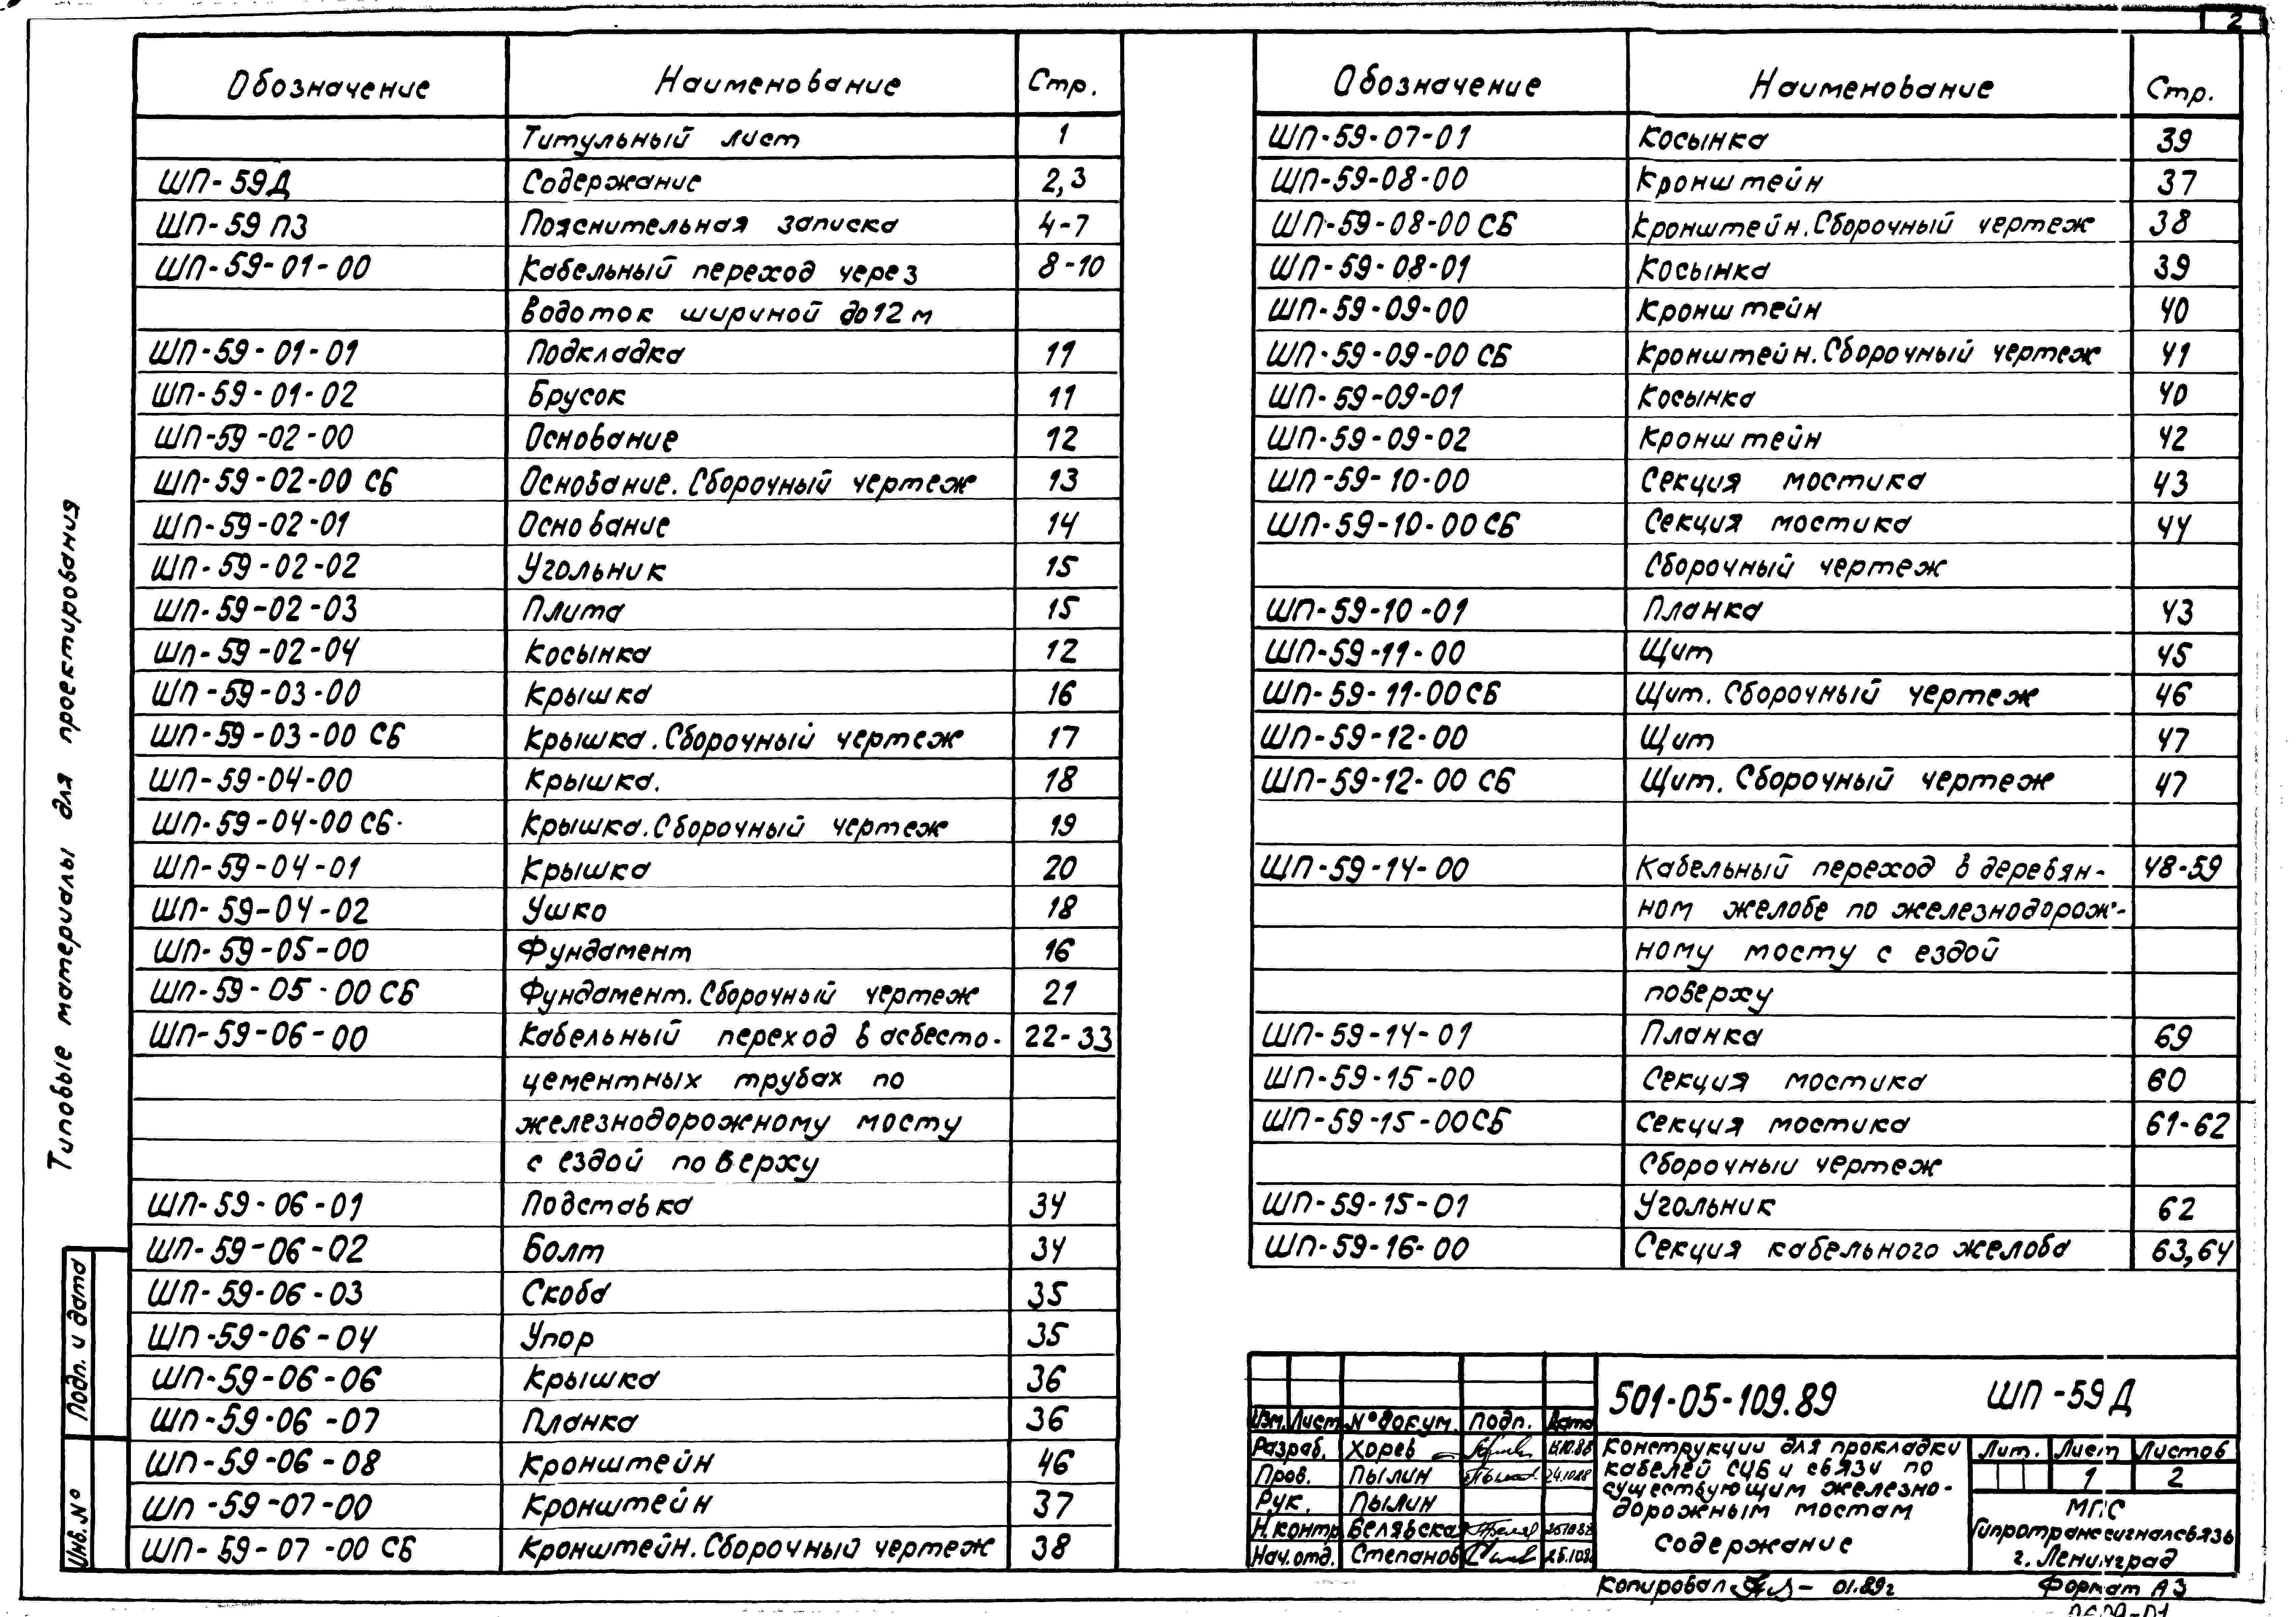 2
Обозначение Наименование Стр.
Титульный лист 1
ШП-59Д Содержание 2,3
ШП-59 ПЗ Пояснительная записка 4-7
ШП-59-01-00 Кабельный переход через 8-10
водоток шириной до 12 м
ШП-59-01-01 Подкладка 11
ШП-59-01-02 Брусок 11
ШП-59-02-00 Основание 12
ШП-59-02-00 СБ Основание. Сборочный чертеж 13
ШП-59-02-01 Основание 14
ШП-59-02-02 Угольник 15
ШП-59-02-03 Плита 15
ШП-59-02-04 Косынка 12
ШП-59-03-00 Крышка 16
ШП-59-03-00 СБ Крышка. Сборочный чертеж 17
ШП-59-04-00 Крышка. 18
ШП-59-04-00 СБ. Крышка. Сборочный чертеж 19
ШП-59-04-01 Крышка 20
ШП-59-04-02 Ушко 18
ШП-59-05-00 Фундамент 16
ШП-59-05-00 СБ Фундамент. Сборочный чертеж 21
ШП-59-06-00 Кабельный переход в асбесто- 22-33
цементных трубах по
железнодорожному мосту
с ездой поверху
ШП-59-06-01 Подставка 34
ШП-59-06-02 Болт 34
ШП-59-06-03 Скоба 35
ШП-59-06-04 Упор 35
ШП-59-06-06 Крышка 36
ШП-59-06-07 Планка 36
ШП-59-06-08 Кронштейн 46
ШП-59-07-00 Кронштейн 37
ШП-59-07-00 СБ Кронштейн. Сборочный чертеж 38
Обозначение Наименование Стр.
ШП-59-07-01 Косынка 39
ШП-59-08-00 Кронштейн 37
ШП-59-08-00 СБ Кронштейн. Сборочный чертеж 38
ШП-59-08-01 Косынка 39
ШП-59-09-00 Кронштейн 40
ШП-59-09-00 СБ Кронштейн. Сборочный чертеж 41
ШП-59-09-01 Косынка 40
ШП-59-09-02 Кронштейн 42
ШП-59-10-00 Секция мостика 43
ШП-59-10-00 СБ Секция мостика 44
Сборочный чертеж
ШП-59-10-01 Планка 43
ШП-59-11-00 Щит 45
ШП-59-11-00 СБ Щит. Сборочный чертеж 46
ШП-59-12-00 Щит 47
ШП-59-12-00 СБ Щит. Сборочный чертеж 47
ШП-59-14-00 Кабельный переход в деревян- 48-59
ном желобе по железнодорож-
ному мосту с ездой
поверху
ШП-59-14-01 Планка 69
ШП-59-15-00 Секция мостика 60
ШП-59-15-00 СБ Секция мостика 61-62
Сборочный чертеж
ШП-59-15-01 Угольник 62
ШП-59-16-00 Секция кабельного желоба 63,64
Типовые материалы для проектирования
Подп. и дата
Инв. №
501-05-109.89 ШП-59Д
Изм. Лист № докум. Подп. Дата
Разраб. Хорев
Пров. Пылин 24.10.88
Рук. Пылин
Н.контр. Белявская
Нач.отд. Степанов
Конструкции для прокладки
кабелей СЦБ и связи по
существующим железно-
дорожным мостам
Содержание
Лит. Лист Листов
1 2
МПС
Гипротранссигналсвязь
г. Ленинград
Копировал 01.89г Формат А3